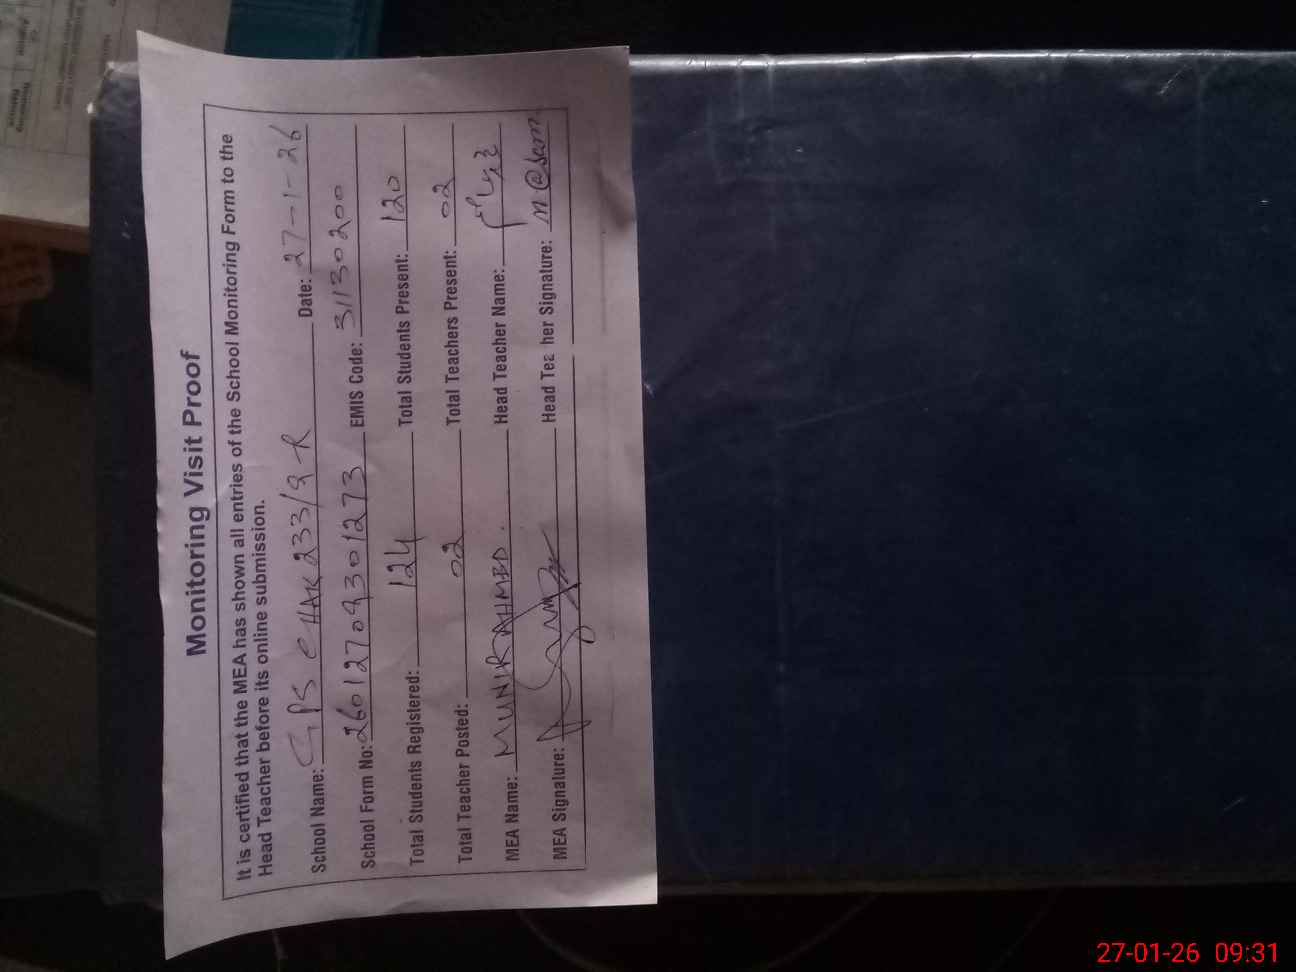 Monitoring Visit Proof
It is certified that the MEA has shown all entries of the School Monitoring Form to the
Head Teacher before its online submission.
School Name: GPS CHAK 233/9-R Date: 27-1-26
School Form No: 26012709301273 EMIS Code: 31130200
Total Students Registered: 124 Total Students Present: 120
Total Teacher Posted: 02 Total Teachers Present: 02
MEA Name: MUNIR AHMED. Head Teacher Name:
MEA Signature: Head Teacher Signature:
27-01-26 09:31